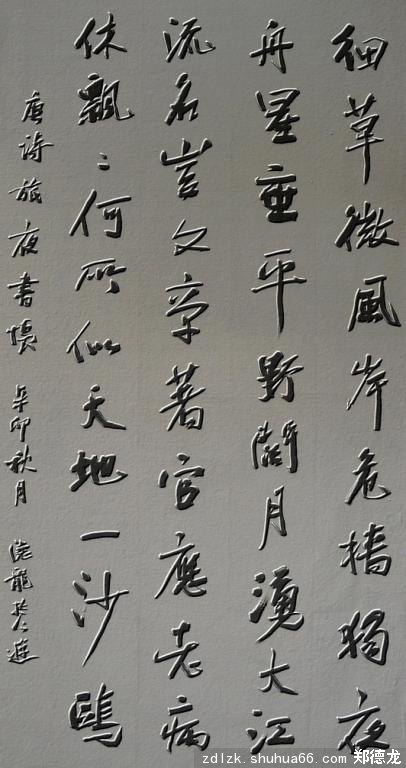 细草微風岸危檣獨夜
舟星垂平野闊月湧大江
流名豈文章著官應老病
休飄〻何所似天地一沙鷗
唐詩旅夜書懷 辛卯秋月 德龍
zdlzk.shuhua66.com 郑德龙